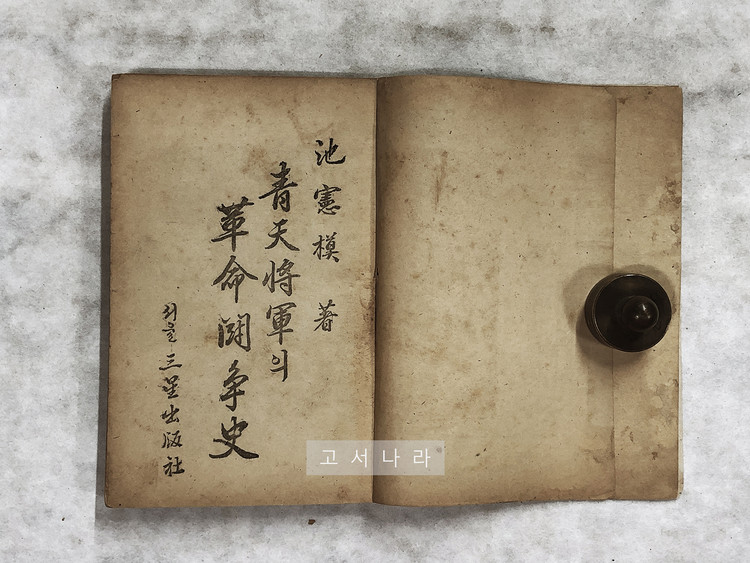 池憲模 著
青天將軍의
革命鬪争史
서울 三星出版社
고서나라